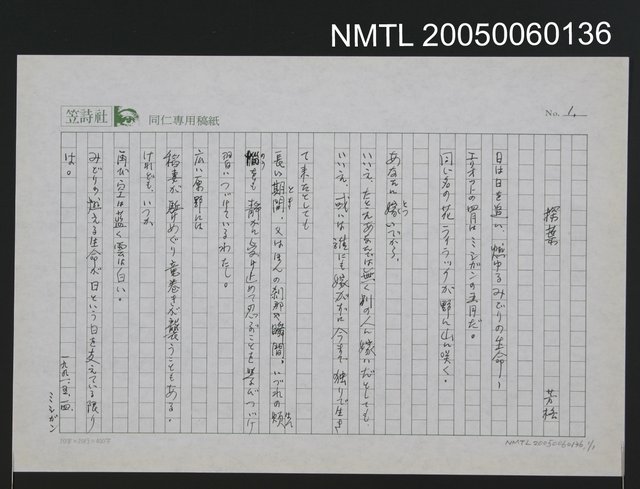 NMTL 20050060136
笠詩社
同仁専用稿紙
No. 1.
探葉
芳格
日は日を追い、燃ゆるみどりの生命！
エリオットの四月はミシガンの五月だ。
同じ名の花ライラックが野に山に咲く。
あなたに嫁いでから。
いいえ、たとえあなたでは無く別の人に嫁いだとしても
いいえ、或いは誰にも嫁がずに今まで独りで生き
て来たとしても
長い期間、又はほんの刹那や瞬間、いづれの煩
悩をも静かに受け止めて忍ぶことを学びつづけ
習いつづけているわたし。
広い原野には
稲妻が駆けめぐり竜巻きが襲うこともある。
けれども、いつか
再び空は藍く雲は白い。
みどりの燃える生命が日という日を支えている限り
は。
一九九一・五・四、
ミシガン
20字×20行＝400字
NMTL20050060136, 1/1